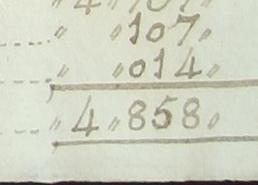 " " 107 "
" " 014 "
" 4 " 858 "